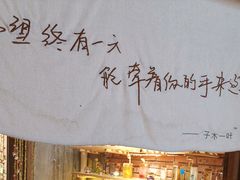 望终有一天
能牵着你的手来这
——子木一叶